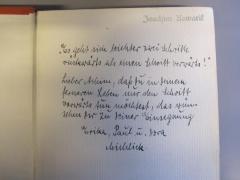 Joachim Kowarik
"Es geht sich leichter zwei Schritte
rückwärts als einen Schritt vorwärts!"
Lieber Achim, daß du in deinem
ferneren Leben nur den Schritt
vorwärts tun möchtest, das wün-
schen dir zu deiner Einsegnung
Erika, Paul u. Dora